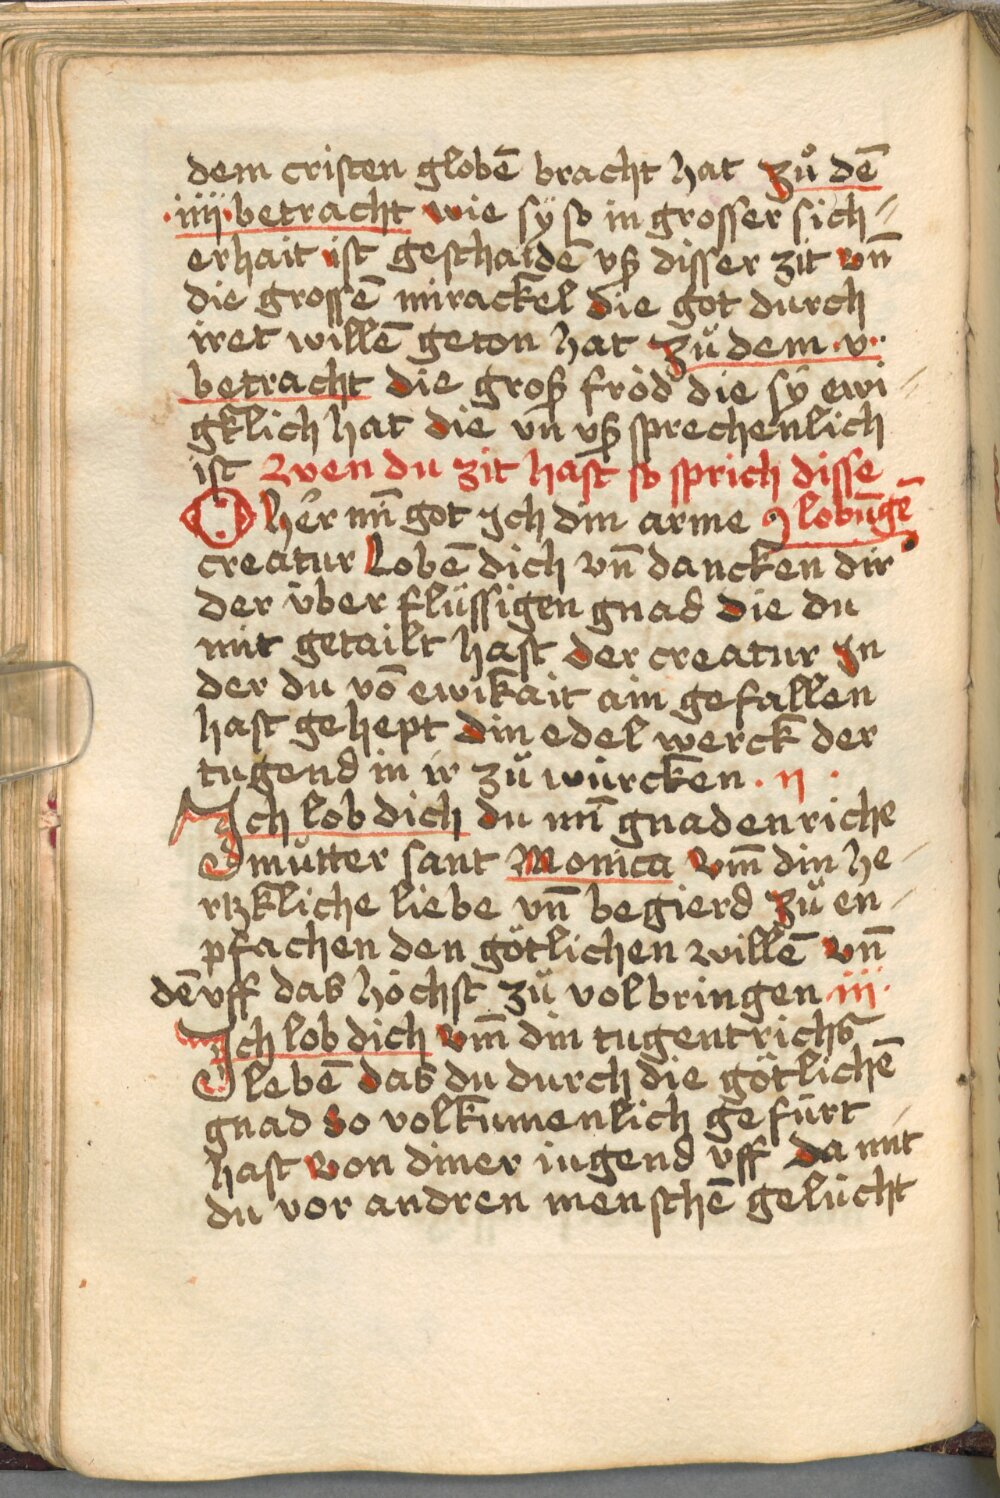 dem cristen globē bracht hat zů dē
·iiii· betracht wie sÿ so in grosser sich⸗
erhait ist geschaidē vß disser zit vn̄
die grossē mirackel die got durch
iret willē geton hat zů dem ·v·
betracht die groß fröd die sÿ ewi⸗
gklich hat die vn vß sprechenlich
ist wen du zit hast so sprich disse
O her min̄ got ich din arme lobūgē
creatur Lobē dich vn̄ dancken dir
der v̈ber flüssigen gnad die du
mit getailt hast der creatur In
der du vō ewikait ain gefallen
hast gehept din edel werck der
tugend in ir zů würcken · ii ·
Ich lob dich du min̄ gnadenriche
můtter sant Monica vm̄ din he⸗
rtzkliche liebe vn̄ begierd zů en⸗
pfachen den götlichen willē vn̄
dē vff das höchst zů volbringen iii·
Ich lob dich vm̄ din tugentrichs
lebē das du durch die götlichē
gnad so volkumenlich gefürt
hast von diner iugend vff da mit
du vor andren menschē gelücht